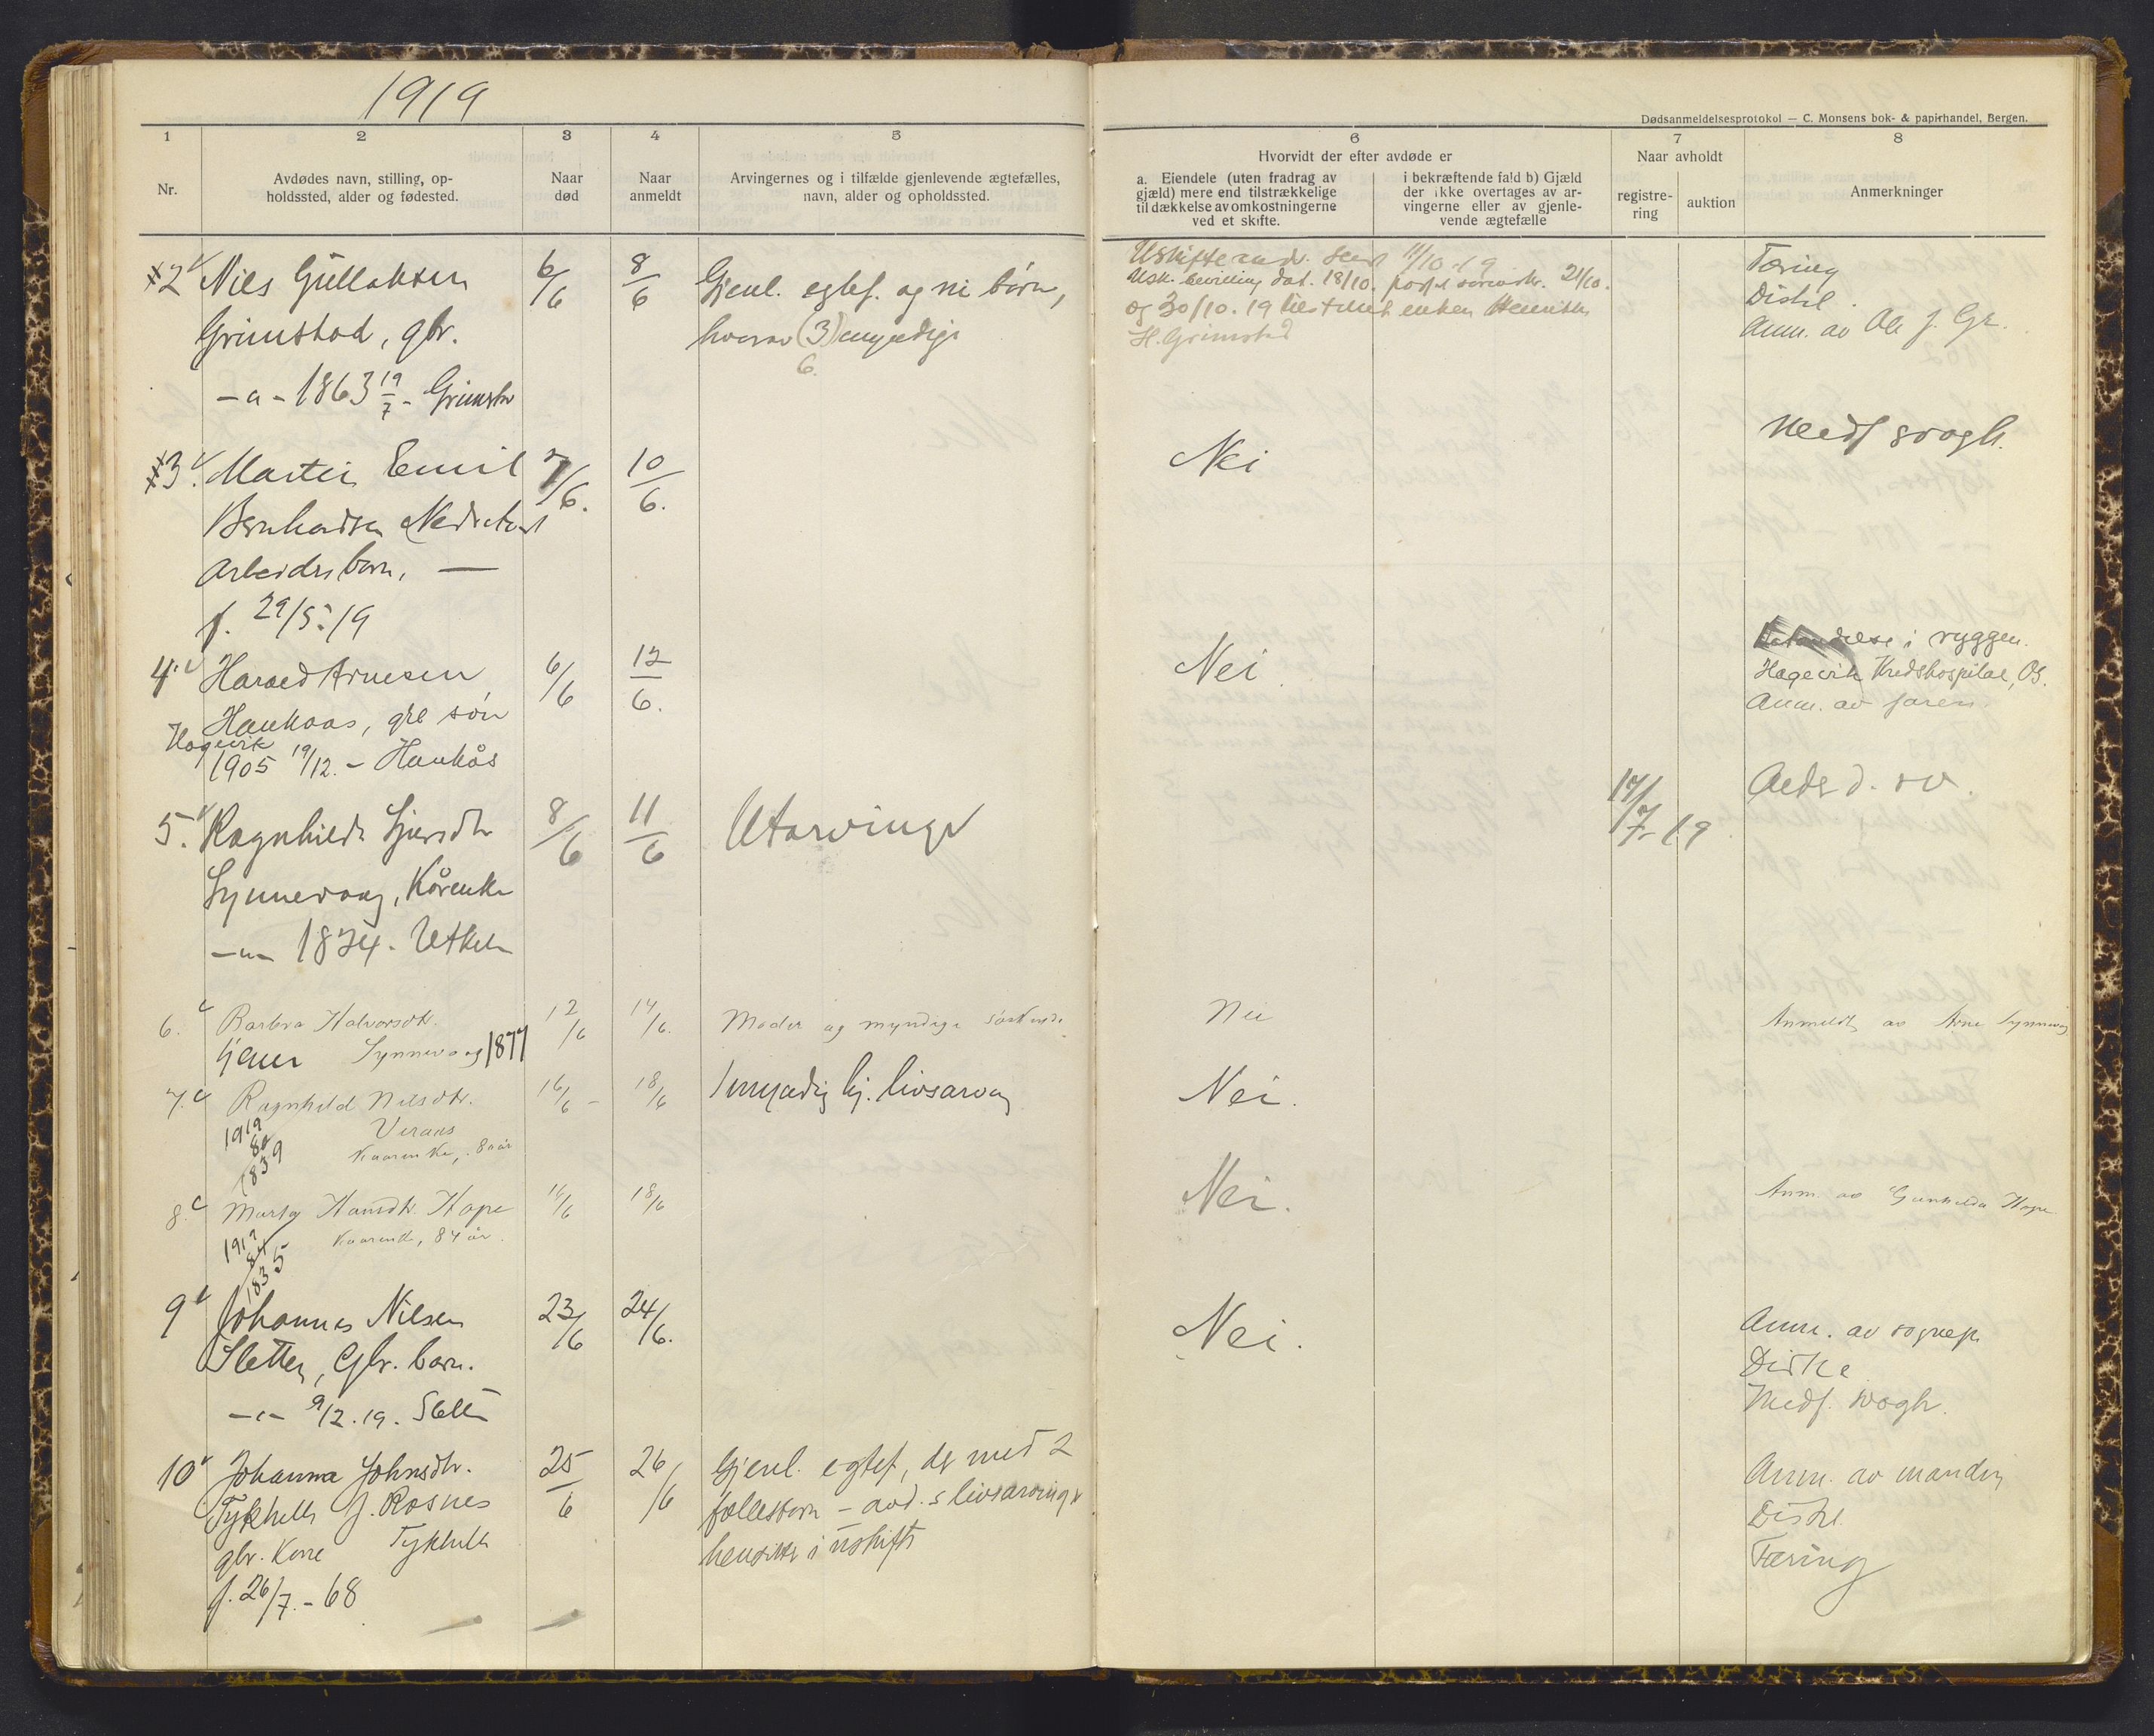 1919
Dødsanmeldelsesprotokol — C. Monsens bok- & papirhandel, Bergen.
1 2 3 4 5 6 7 8
Nr.
Avdødes navn, stilling, op-
holdssted, alder og fødested.
Naar
død
Naar
anmeldt
Arvingernes og i tilfælde gjenlevende ægtefælles,
navn, alder og opholdssted.
Hvorvidt der efter avdøde er
a. Eiendele (uten fradrag av
gjæld) mere end tilstrækkelige
til dækkelse av omkostningerne
ved et skifte.
i bekræftende fald b) Gjæld
der ikke overtages av ar-
vingerne eller av gjenle-
vende ægtefælle
Naar avholdt
registre-
ring
auktion
Anmerkninger
2 Nils Gullaksen 6/6 8/6 Gjenl. egtef. og ni børn,
Grimstad, gbr. hvorav (3) umyndige
6.
- a - 1863 19/7 - Grimstad
11/10 19
Usk. bevilling dat. 18/10. 21/10.
og 30/10. 19 enken
H. Grimstad
Tæring
Distl.
Anm. av Ole J. Gr.
3. Martin Emil 7/6. 10/6. Nei Medf svagh.
Bernhardsen
Arbeidsbarn, —
f. 29/5.19
4. Harald Arnesen 6/6 12/6. Nei i ryggen.
Haukaas, gbr søn
Hagevik
1905 19/12. - Haukås
Hagevik Kredshospital, Os.
Anm. av faren
5. Ragnhilds 8/6 11/6 Utarvinger 17/7-19 Alderd. sv.
Synnevaag, Kårenke
-"- 1834.
6. Barbra Halvorsdtr. 12/6 14/6. Moder og myndige søskende Nei Anmeldt av Arne Synnevåg
Synnevaag 1877
7. Ragnhild Nilsdtr. 16/6 - 18/6 1 umyndig livsarving Nei.
Kaarenke, 80 år
1919
80
1839
8. Marta Hansdtr. Hope 16/6 18/6 Nei. Anm. av Gunhilda Hope
Kaarenke, 84 år.
1919
84
1835
9 Johannes Nilsen 23/6 24/6. Nei. Anm. av sognepr.
Sletten, Gbr. barn.
-"- 9/2.19. Sletten
Medf. svagh.
10 Johanna Johnsdtr. 25/6 26/6 Gjenl. egtef, der med 2
f. Røsnes fællesbarn - avd.s livsarvinger
gbr. Kone
hensitter i uskifte
f. 26/7.-68
Anm. av manden
Distl.
Tæring